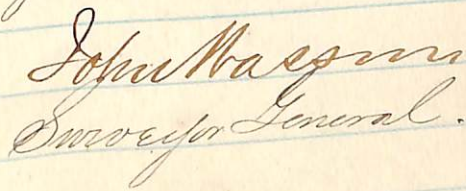 John Wasson
Surveyor General.